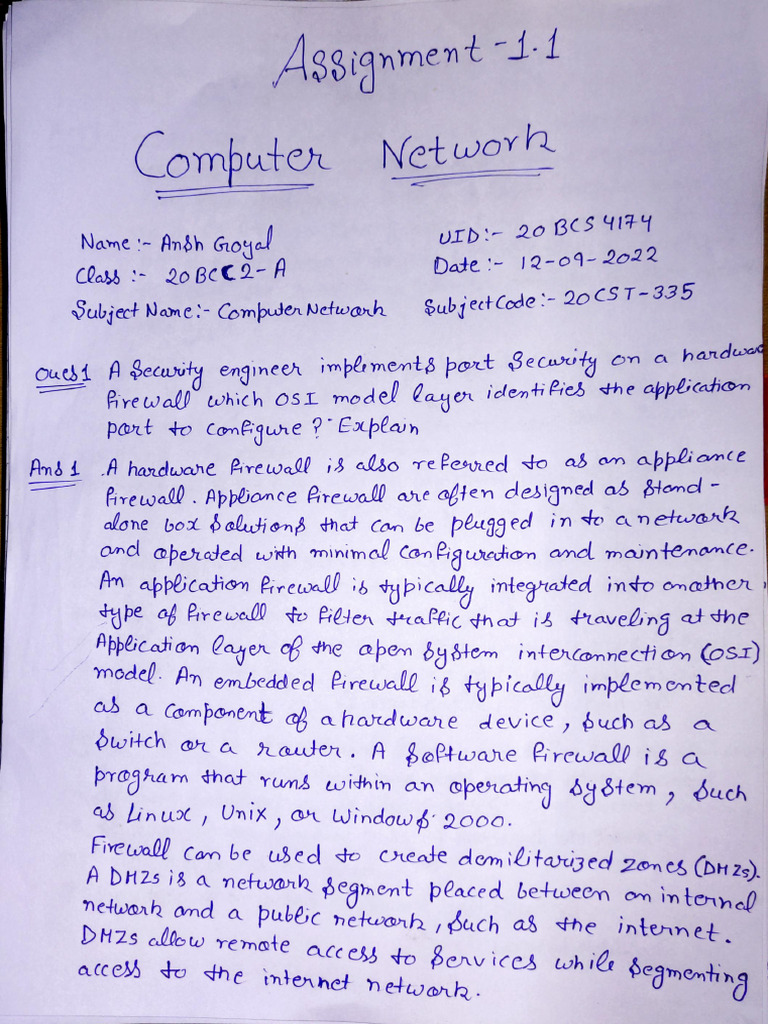 Assignment-1.1
Computer Network
Name:- Ansh Goyal
UID:- 20BCS4174
Class:- 20BCC2-A
Date:- 12-09-2022
Subject Name:- Computer Network
Subject Code:- 20CST-335
Ques1 A Security engineer implements port Security on a hardware
firewall which OSI model layer identifies the application
port to configure? Explain
Ans1 A hardware firewall is also referred to as an appliance
firewall. Appliance firewall are often designed as stand-
alone box solutions that can be plugged in to a network
and operated with minimal configuration and maintenance.
An application firewall is typically integrated into another
type of firewall to filter traffic that is traveling at the
Application layer of the open system interconnection (OSI)
model. An embedded firewall is typically implemented
as a component of a hardware device, such as a
switch or a router. A software firewall is a
program that runs within an operating system, such
as Linux, Unix, or Windows 2000.
Firewall can be used to create demilitarized zones (DMZs).
A DMZs is a network segment placed between an internal
network and a public network, such as the internet.
DMZs allow remote access to services while segmenting
access to the internet network.